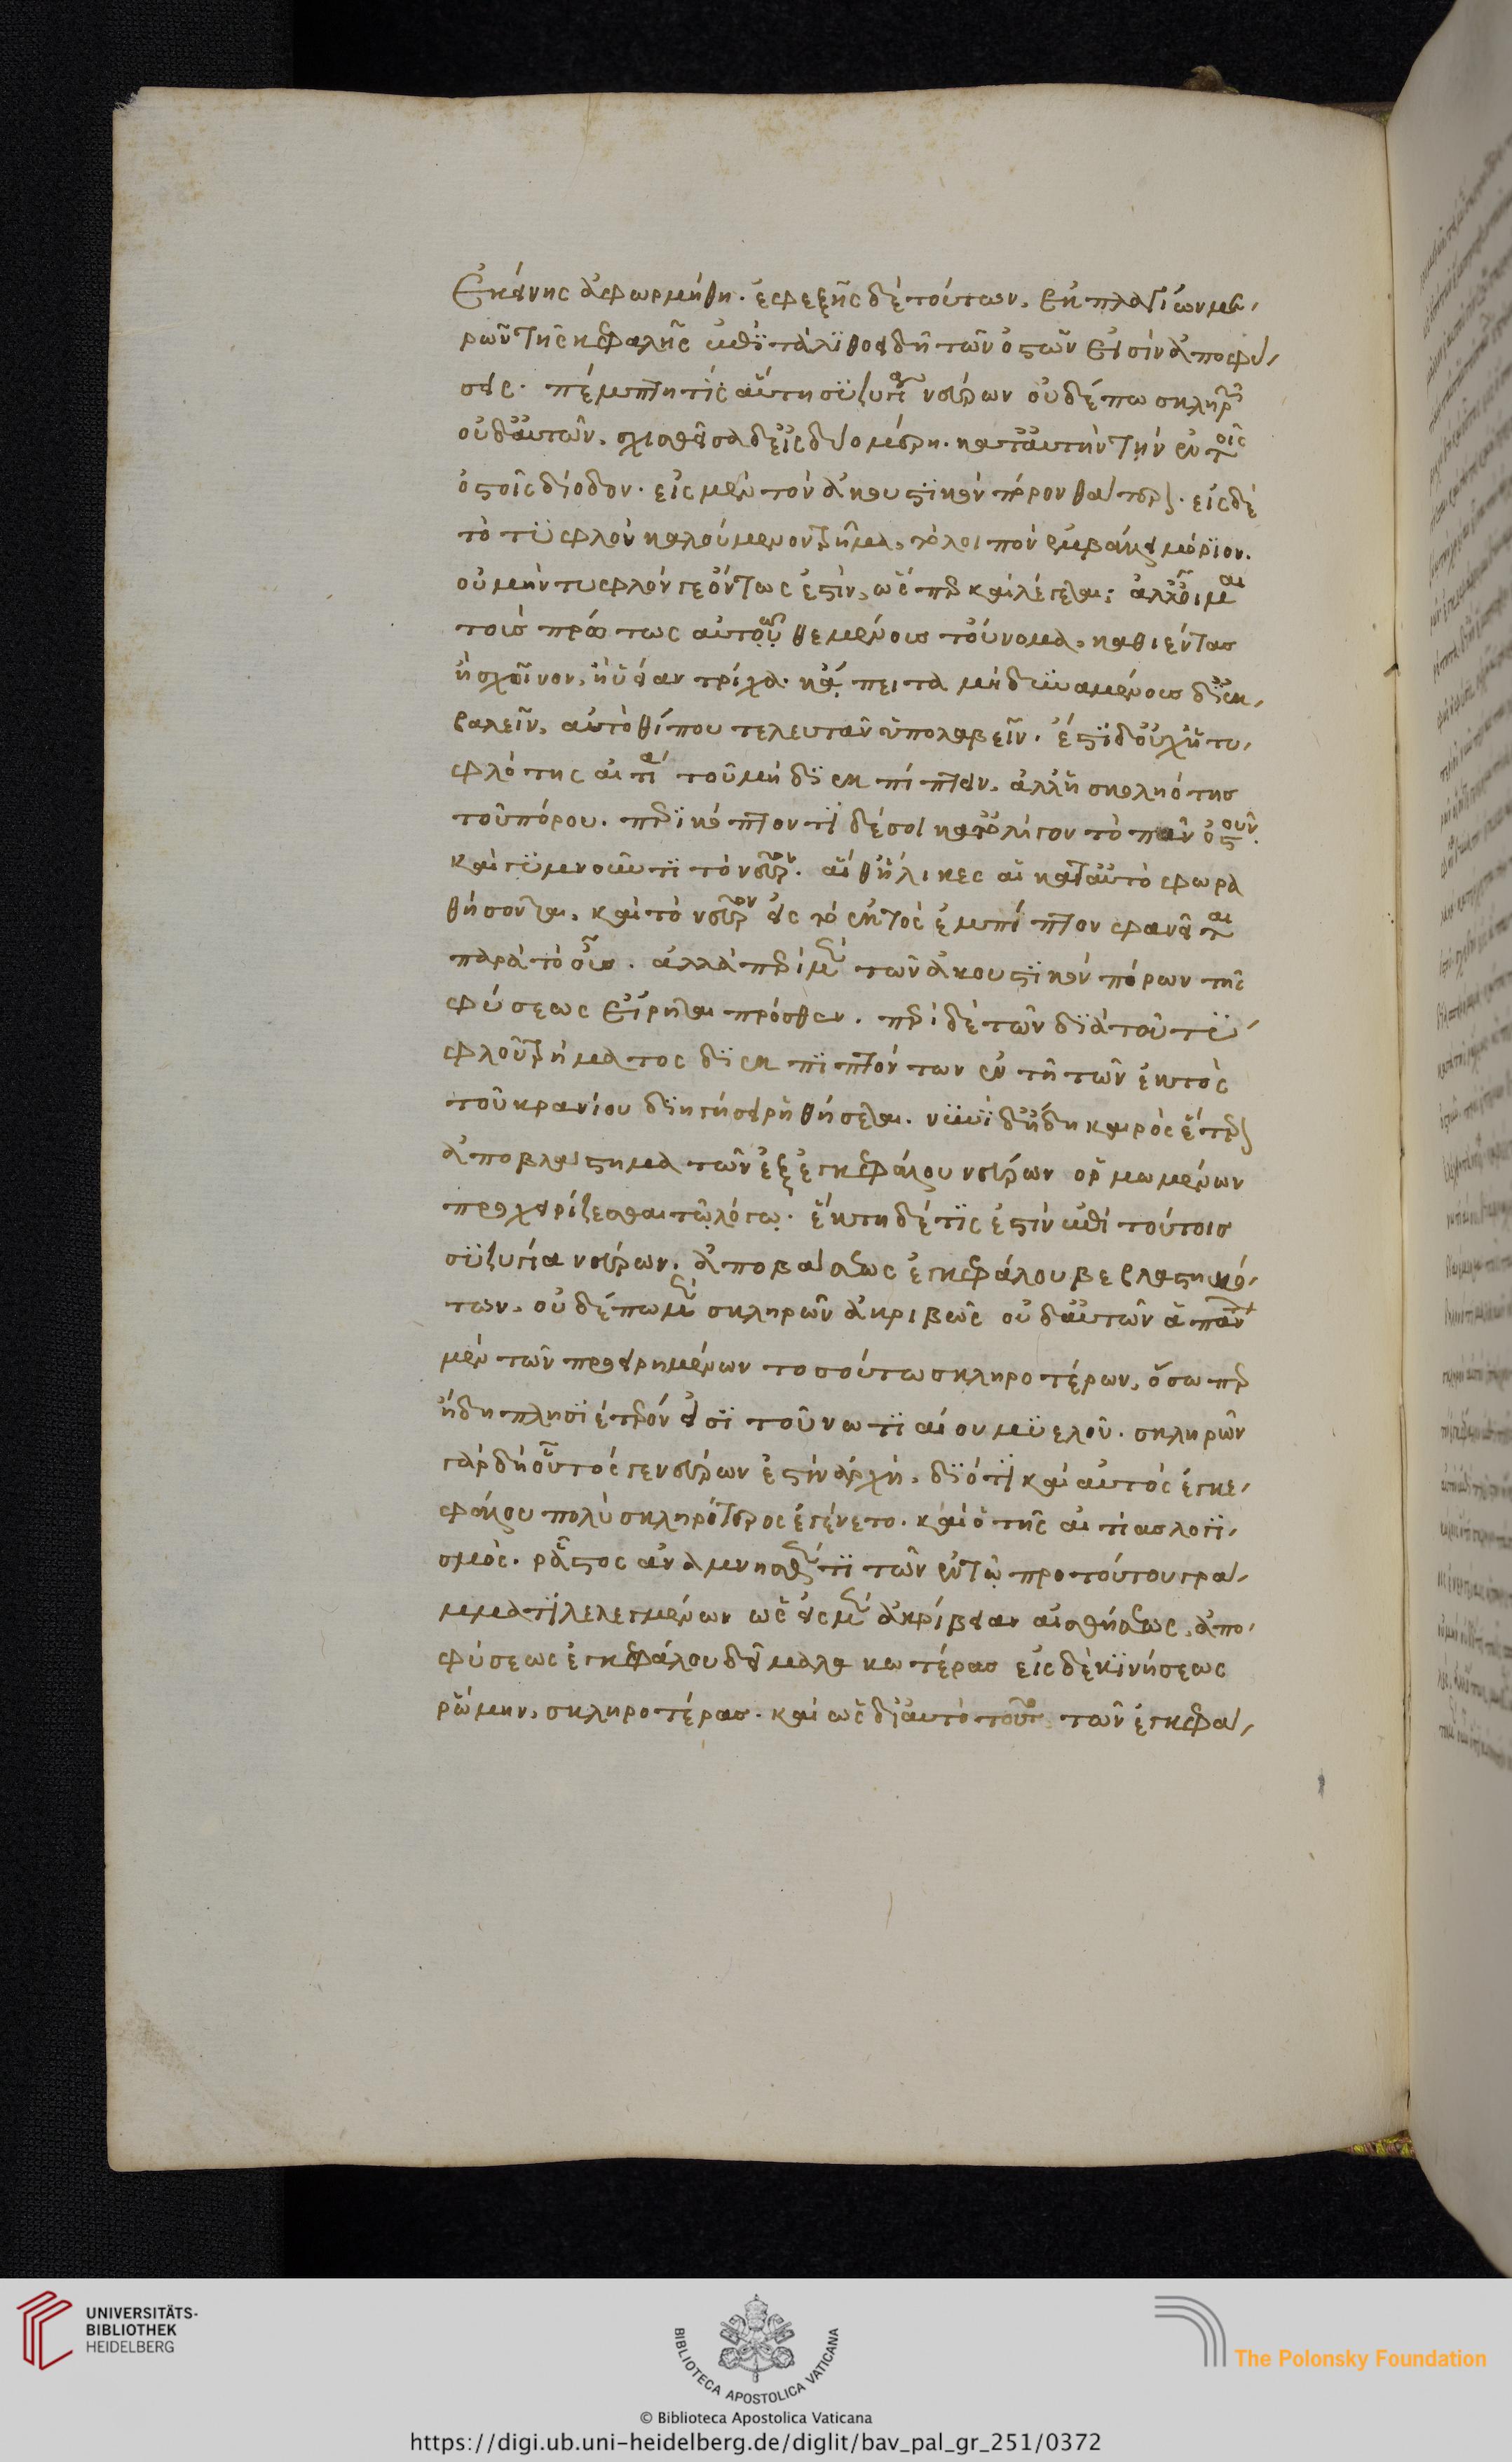 ἐκείνης ἀφωρμήθη. ἐφεξῆς δὲ τούτων, ἐκ πλαγίων με-
ρῶν τῆς κεφαλῆς ἔνθα τὰ λιθοειδῆ τῶν ὀστῶν εἰσὶν ἀποφύ-
σεις. πέμπτη τίς αὕτη συζυγία νεύρων οὐδέπω σκληρῶν
οὐδ' αὐτῶν. σχισθεῖσα δ' εἰς δύο μέρη. κατ' αὐτὴν τὴν ἐν τοῖς
ὀστοῖς δίοδον. εἰς μὲν τὸν ἀκουστικὸν πόρον θάτερον. εἰς δὲ
τὸ τυφλὸν καλούμενον τρῆμα, τὸ λοιπὸν ἐμβάλλει μόριον.
οὐ μὴν τυφλόν γε ὄντως ἐστὶν, ὥσπερ καὶ λέγεται. ἀλλ' ἔοικε
τοῖς πρώτως αὐτῷ θεμένοις τοὔνομα, καθιέντας
ἢ σχοῖνον, ἢ ὑείαν τρίχα. κἄπειτα μὴ δυναμένοις διεκ-
βαλεῖν, αὐτόθί που τελευτᾶν ὑπολαβεῖν. ἔστι δ' οὐχ ἡ τυ-
φλότης αἰτία τοῦ μὴ διεκπίπτειν, ἀλλ' ἡ σκολιότης
τοῦ πόρου. περικόπτοντι δέ σοι κατ' ὀλίγον τὸ πᾶν ὀστοῦν.
καὶ γυμνοῦντι τὸ νεῦρον. αἵ θ' ἕλικες αἱ κατ' αὐτὸ φωρα
θήσονται, καὶ τὸ νεῦρον εἰς τὸ ἐκτὸς ἐμπίπτον φανεῖται
παρὰ τὸ οὖς. ἀλλὰ περὶ μὲν τῶν ἀκουστικῶν πόρων τῆς
φύσεως εἴρηται πρόσθεν. περὶ δὲ τῶν διὰ τοῦ τυ-
φλοῦ τρήματος διεκπιπτόντων ἐν τῇ τῶν ἐκτὸς
τοῦ κρανίου διηγήσει ῥηθήσεται. νυνὶ δ' ἤδη καιρὸς ἕτερον
ἀποβλάστημα τῶν ἐξ ἐγκεφάλου νεύρων ὁρμωμένων
προχειρίζεσθαι τῷ λόγῳ. ἕκτη δέ τις ἐστὶν ἐπὶ τούτοις
συζυγία νεύρων, ἀπὸ βάσεως ἐγκεφάλου βεβλαστηκό-
των, οὐδέπω μὲν σκληρῶν ἀκριβῶς οὐδ' αὐτῶν ἁπάντων
μὲν τῶν προειρημένων τοσούτῳ σκληροτέρων, ὅσῳ περ
ἤδη πλησιέτερόν εἰσι τοῦ νωτιαίου μυελοῦ. σκληρῶν
γὰρ δὴ οὗτός γε νεύρων ἐστὶν ἀρχὴ, διότι καὶ αὐτὸς ἐγκε-
φάλου πολὺ σκληρότερος ἐγένετο. καὶ ὁ τῆς αἰτίας λογι-
σμὸς. ῥᾷστος ἀναμνησθέντι τῶν ἐν τῷ πρὸ τούτου γράμ-
μματι λελεγμένων ὡς εἰς μὲν ἀκρίβειαν αἰσθήσεως, ἀπο-
φύσεως ἐγκεφάλου δεῖ μαλακωτέρας εἰς δὲ κινήσεως
ῥώμην, σκληροτέρας. καὶ ὡς δι' αὐτὸ τοῦτο τῶν ἐγκεφα-
UNIVERSITÄTS-
BIBLIOTHEK
HEIDELBERG
BIBLIOTECA APOSTOLICA VATICANA
The Polonsky Foundation
© Biblioteca Apostolica Vaticana
https://digi.ub.uni-heidelberg.de/diglit/bav_pal_gr_251/0372